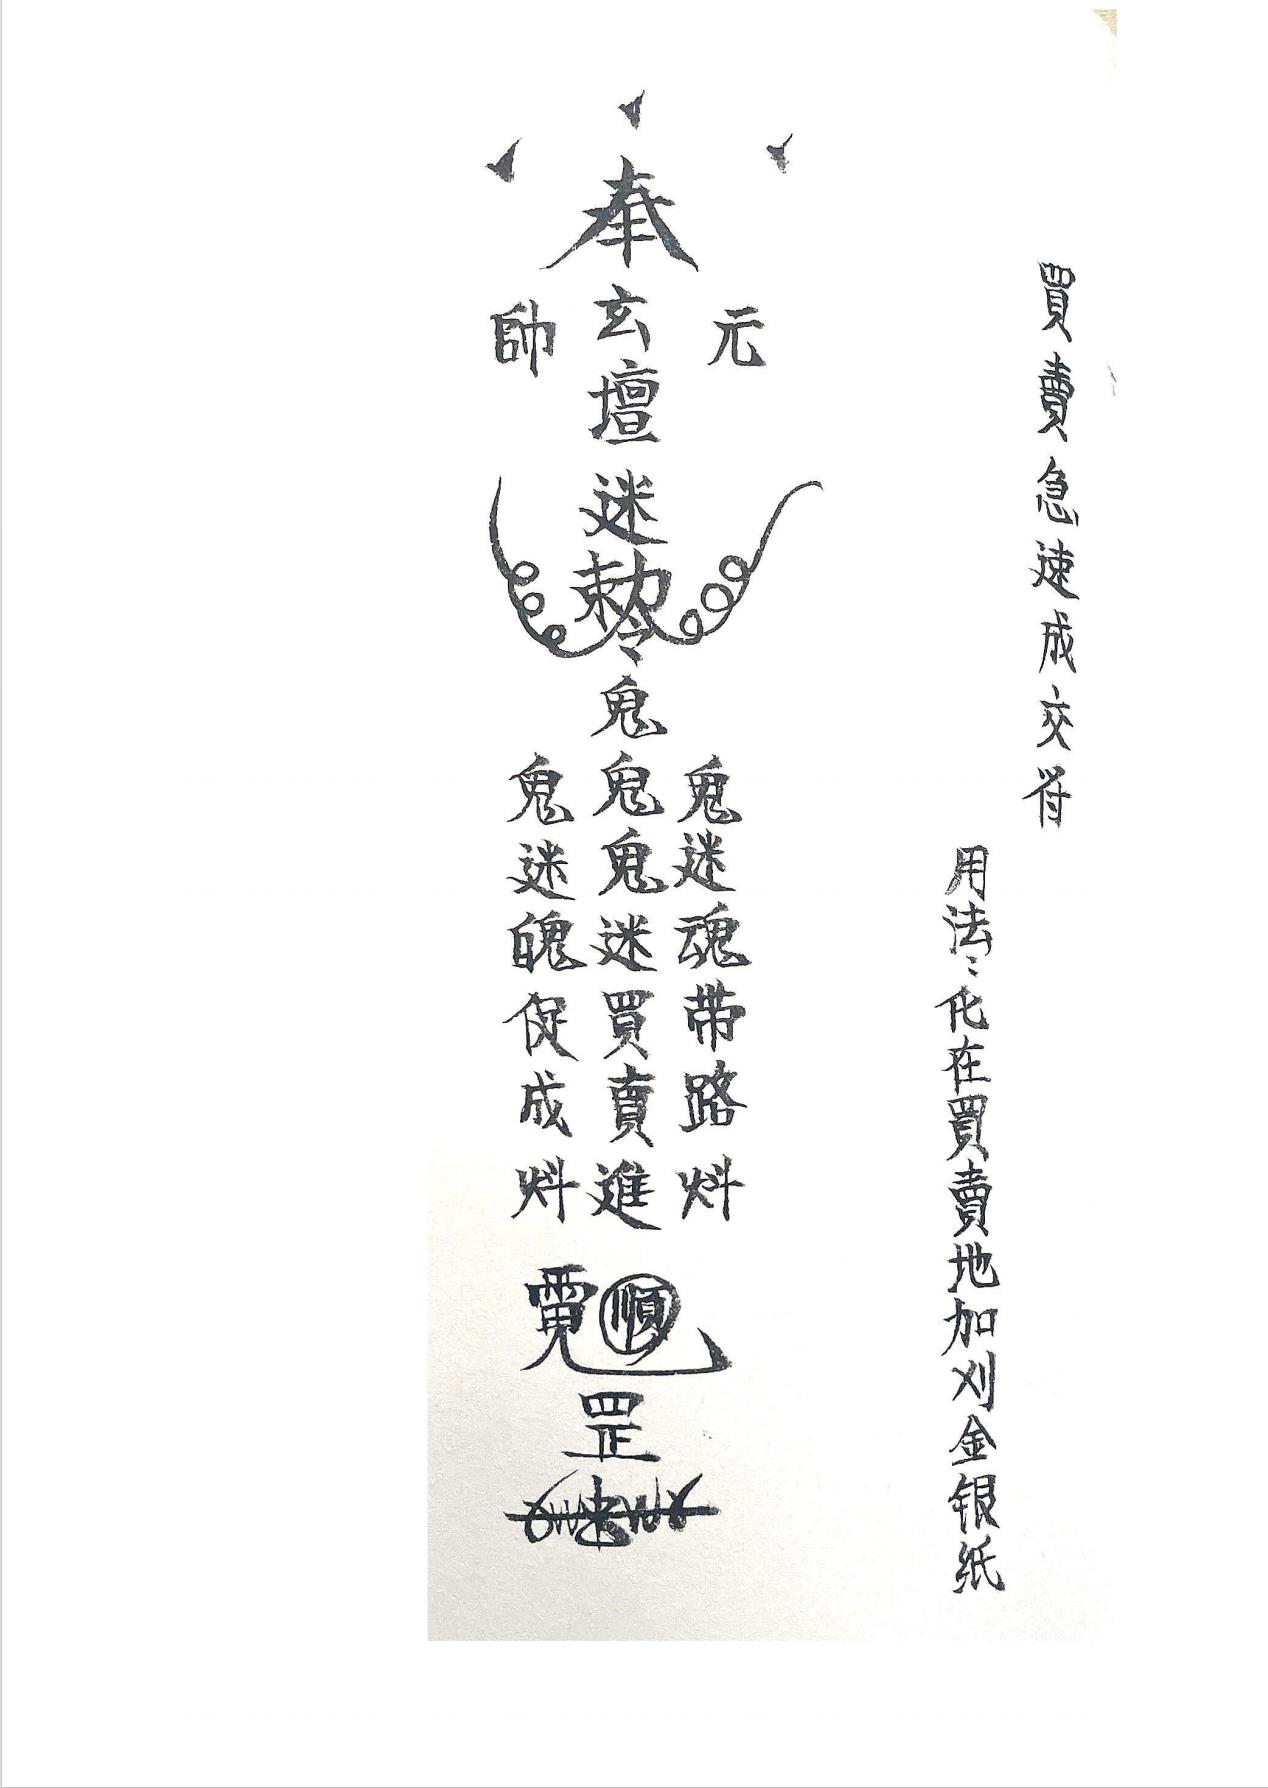 買賣急速成交符
用法：化在買賣地加刈金銀紙
奉
元
玄壇
帥
迷
勅令
鬼
鬼迷魂带路
鬼鬼迷買賣進
鬼迷魄促成
順
罡